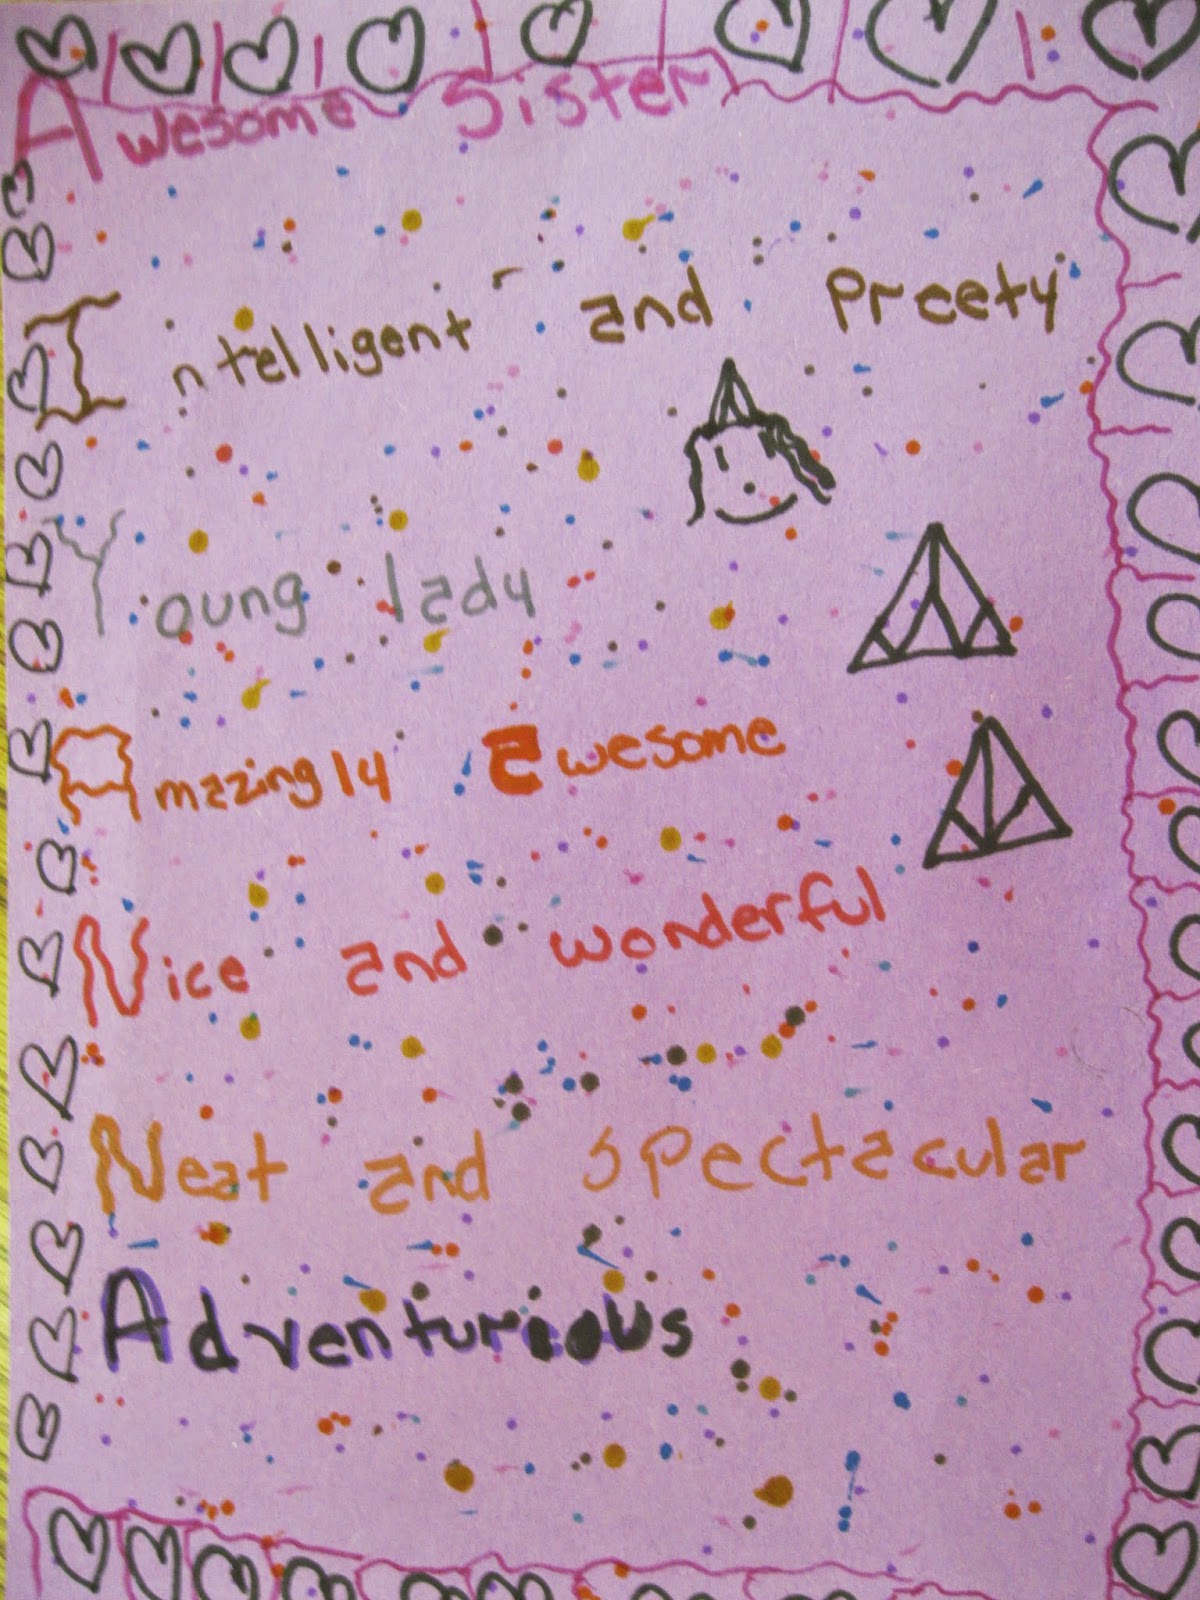 Awesome Sister
Intelligent and Preety
Young lady
Amazingly awesome
Nice and wonderful
Neat and spectacular
Adventurious